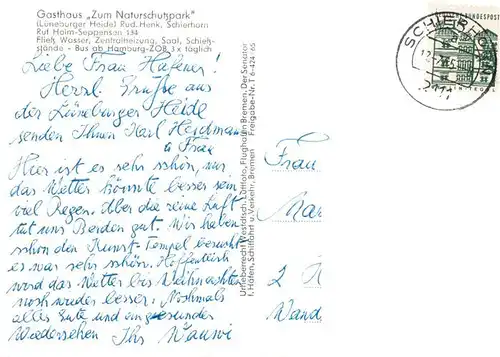 Gasthaus „Zum Naturschutzpark"
(Lüneburger Heide) Rud. Henk, Schierhorn
Ruf Holm-Seppensen 334
Fließ. Wasser, Zentralheizung, Saal, Schieß-
stände - Bus ab Hamburg-ZOB 3 x täglich
Liebe Frau Hafener!
Herzl. Grüße aus
der Lüneburger Heide
senden Ihnen Karl Heidmann
u. Frau
Hier ist es sehr schön, nur
das Wetter könnte besser sein
viel Regen. Aber die reine Luft
tut uns Beiden gut. Wir haben
schon den Kunst-Tempel besucht
es war sehr schön. Hoffentlich
wird das Wetter bis Weihnachten
noch wieder besser. Nochmals
alles Gute und ein gesundes
Wiedersehen Ihr
Urheberrecht Westdtsch. Luftfoto, Flughafen Bremen. Der Senator
f. Häfen, Schiffahrt u. Verkehr, Bremen Freigabe-Nr. T 6-424/65
Frau
2
Wand
SCHIERHO
2111
BUNDESPOST